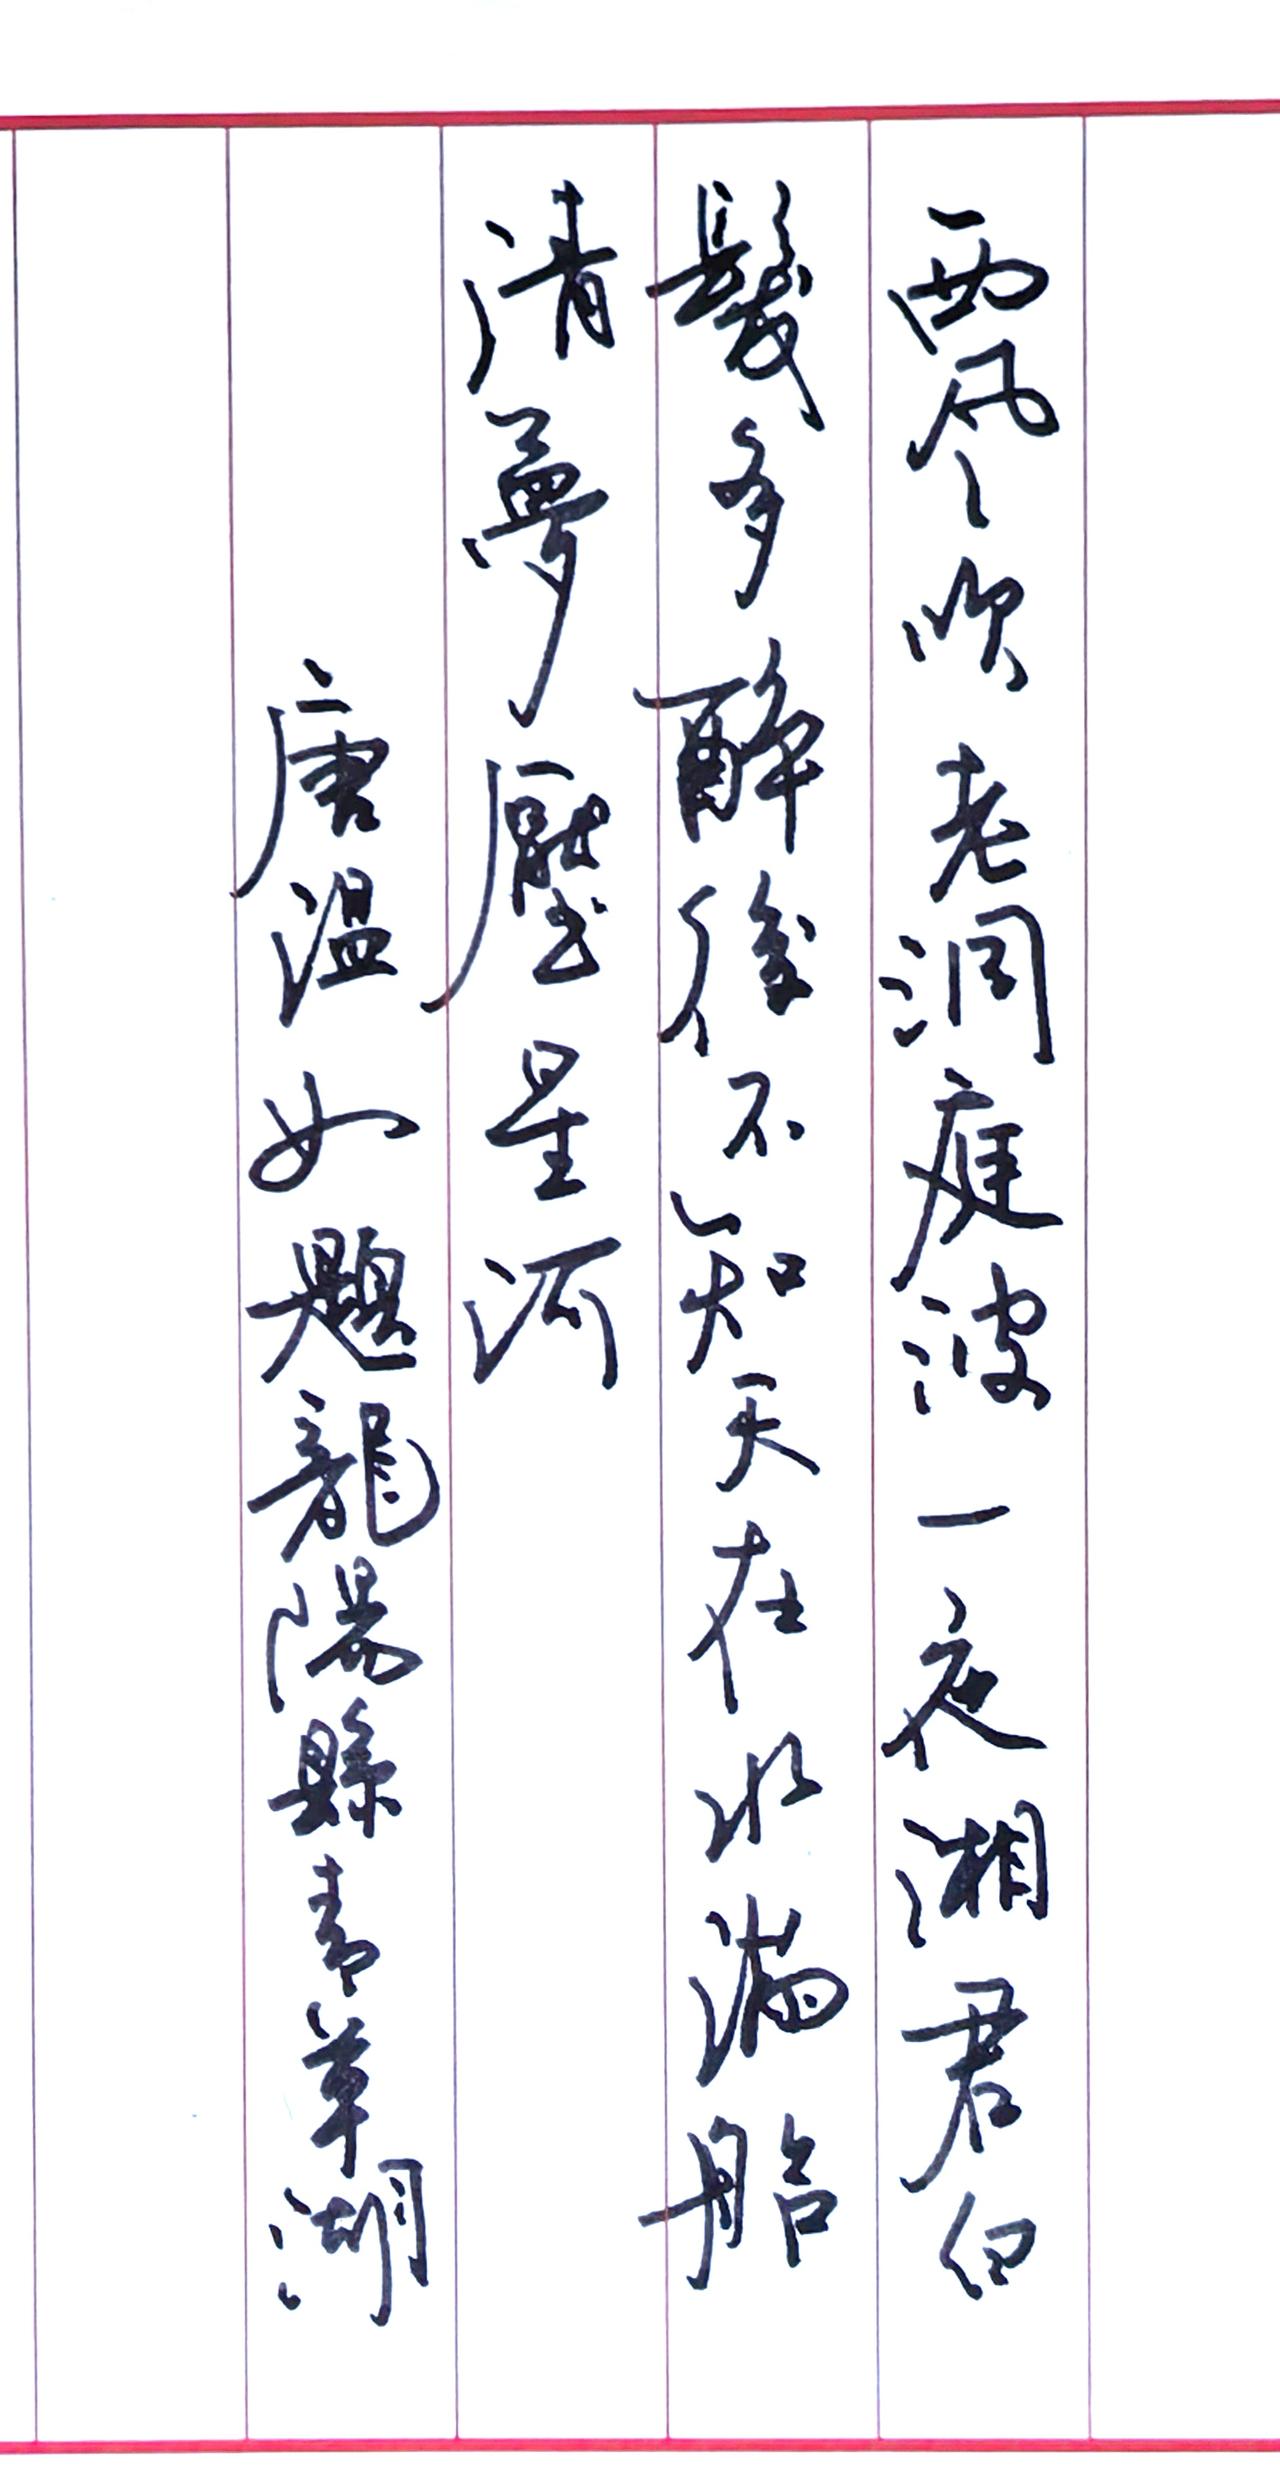 西風吹老洞庭波一夜湘君白
髮多醉後不知天在水滿船
清夢壓星河
唐温如題龍陽縣青草湖